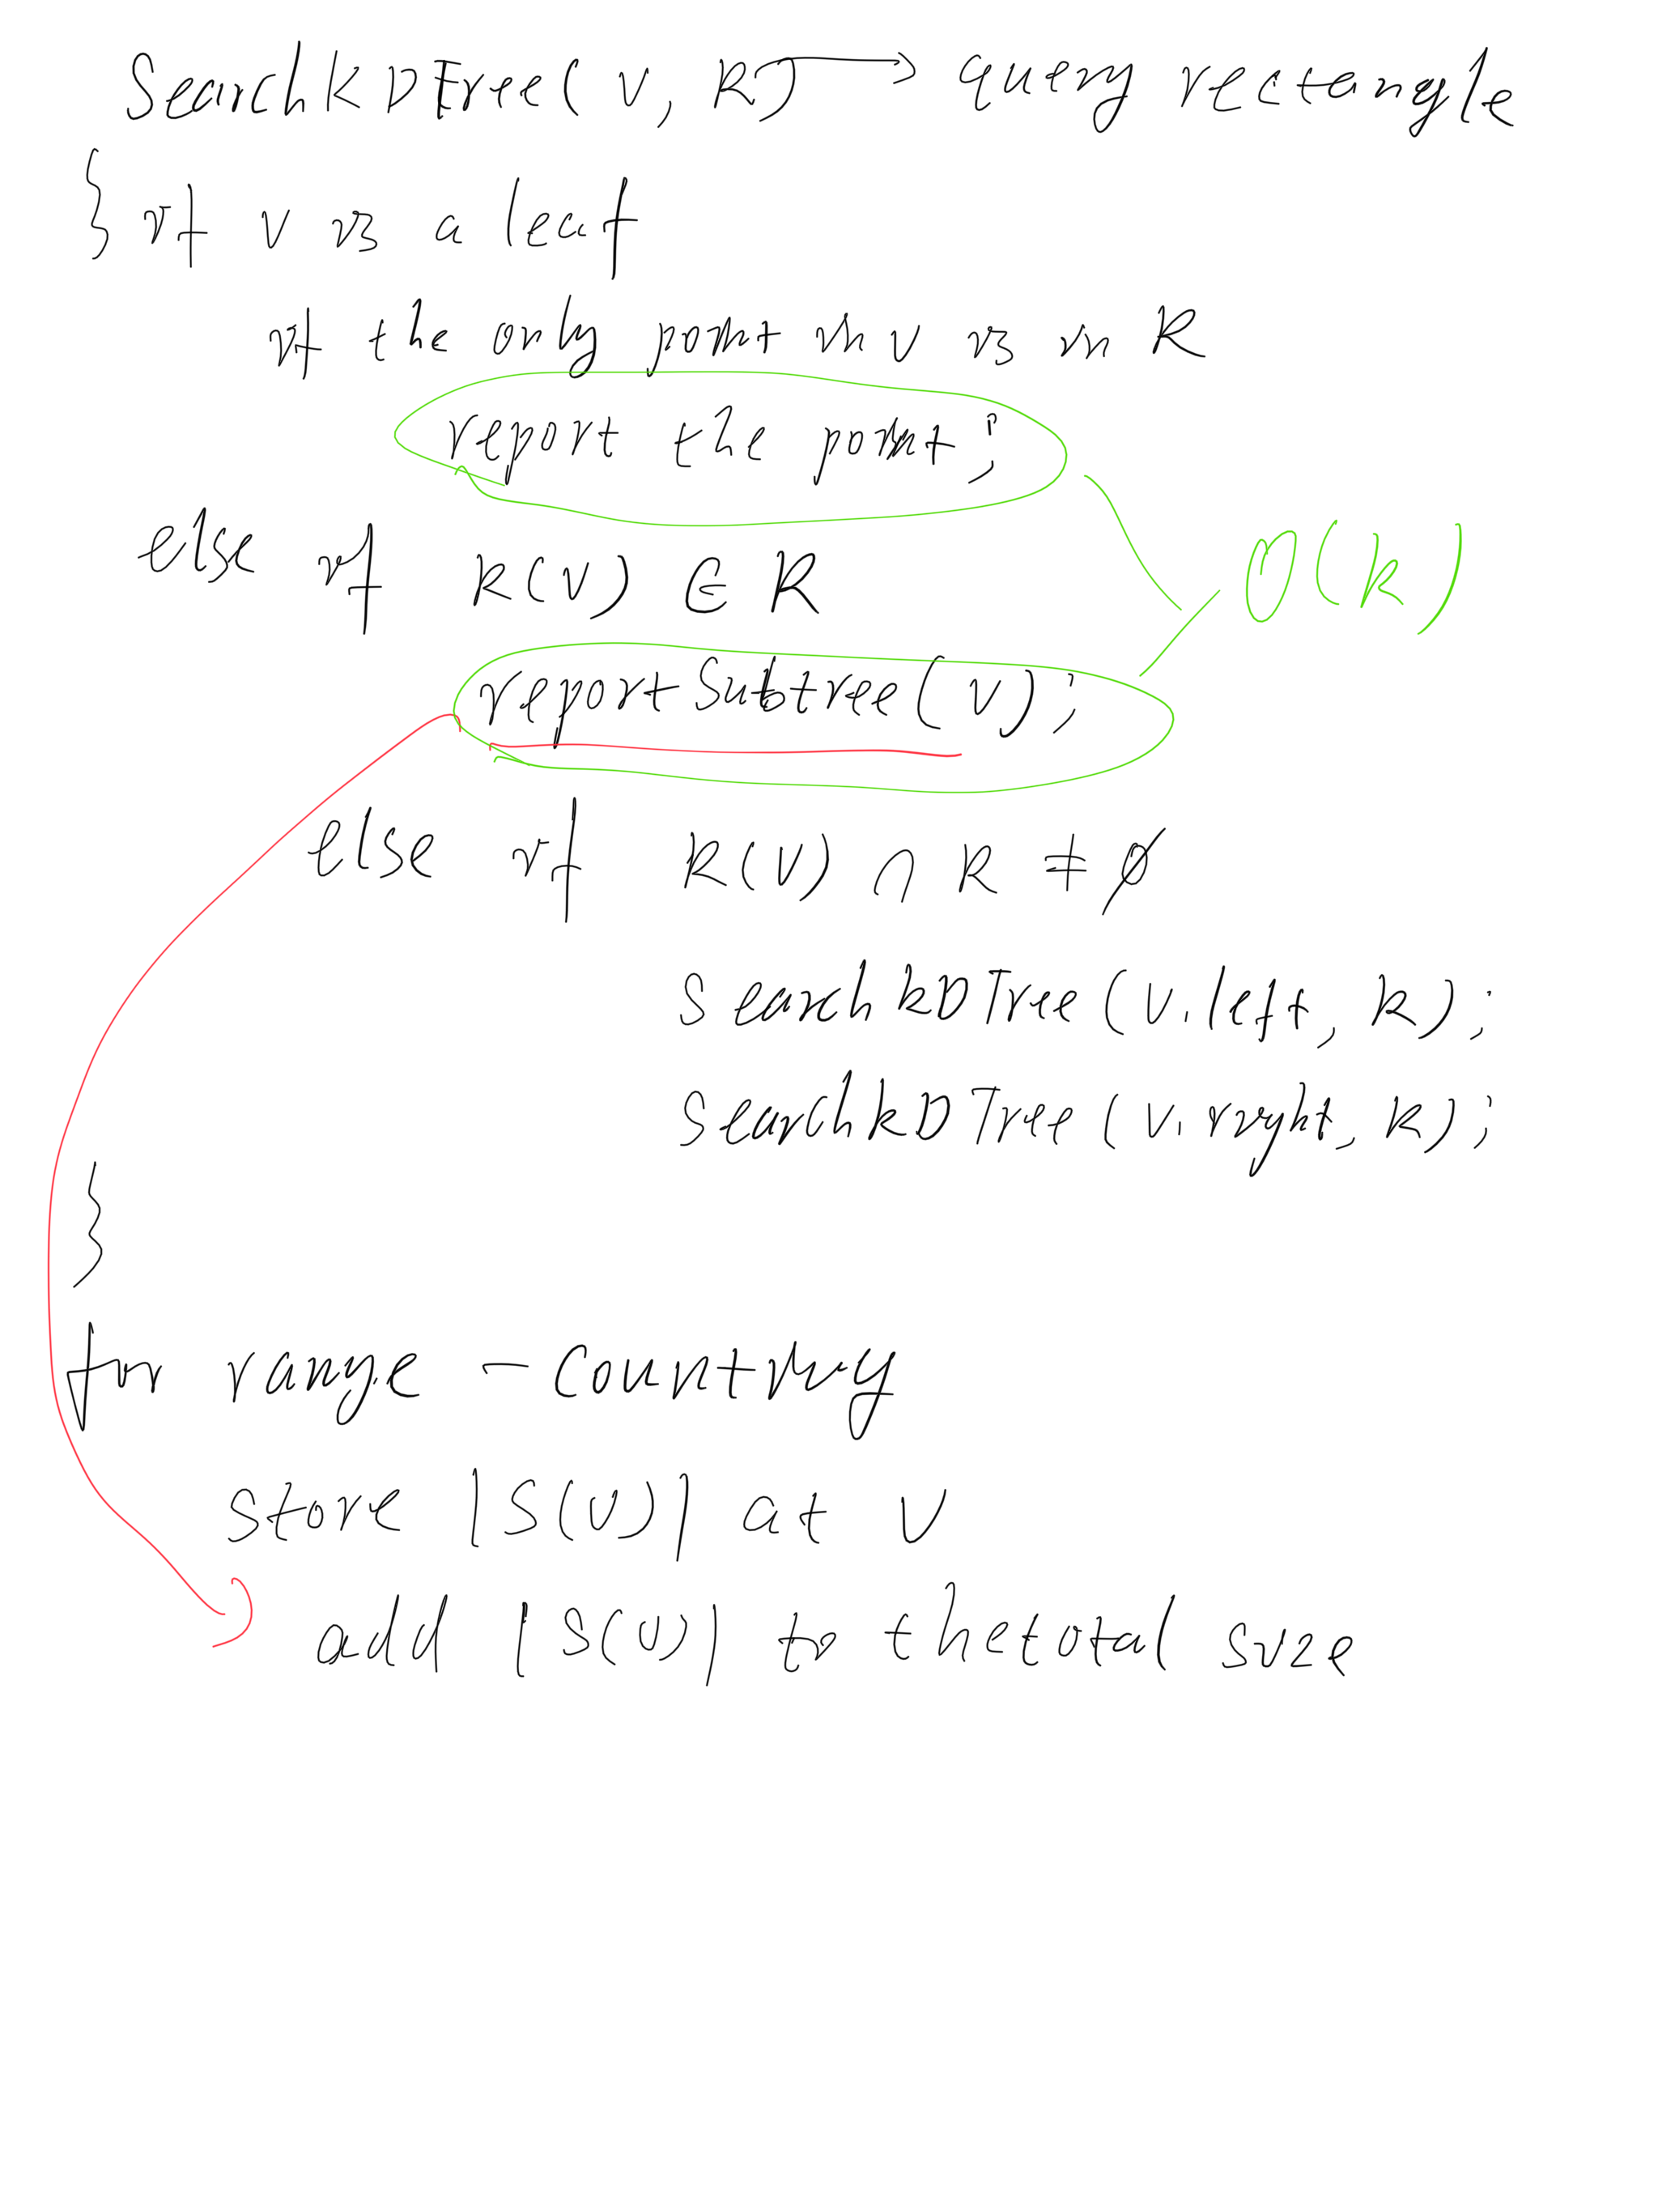 SearchkDTree(v, R) → query rectangle
{ if v is a leaf
if the only point in v is in R
report the point;
else if R(v) ∈ R
O(k)
reportSubtree(v);
else if R(v) ∩ R ≠ ∅
SearchkDTree(v.left, R);
SearchkDTree(v.right, R);
}
for range-counting
store |S(v)| at v
add |S(v)| to the total size